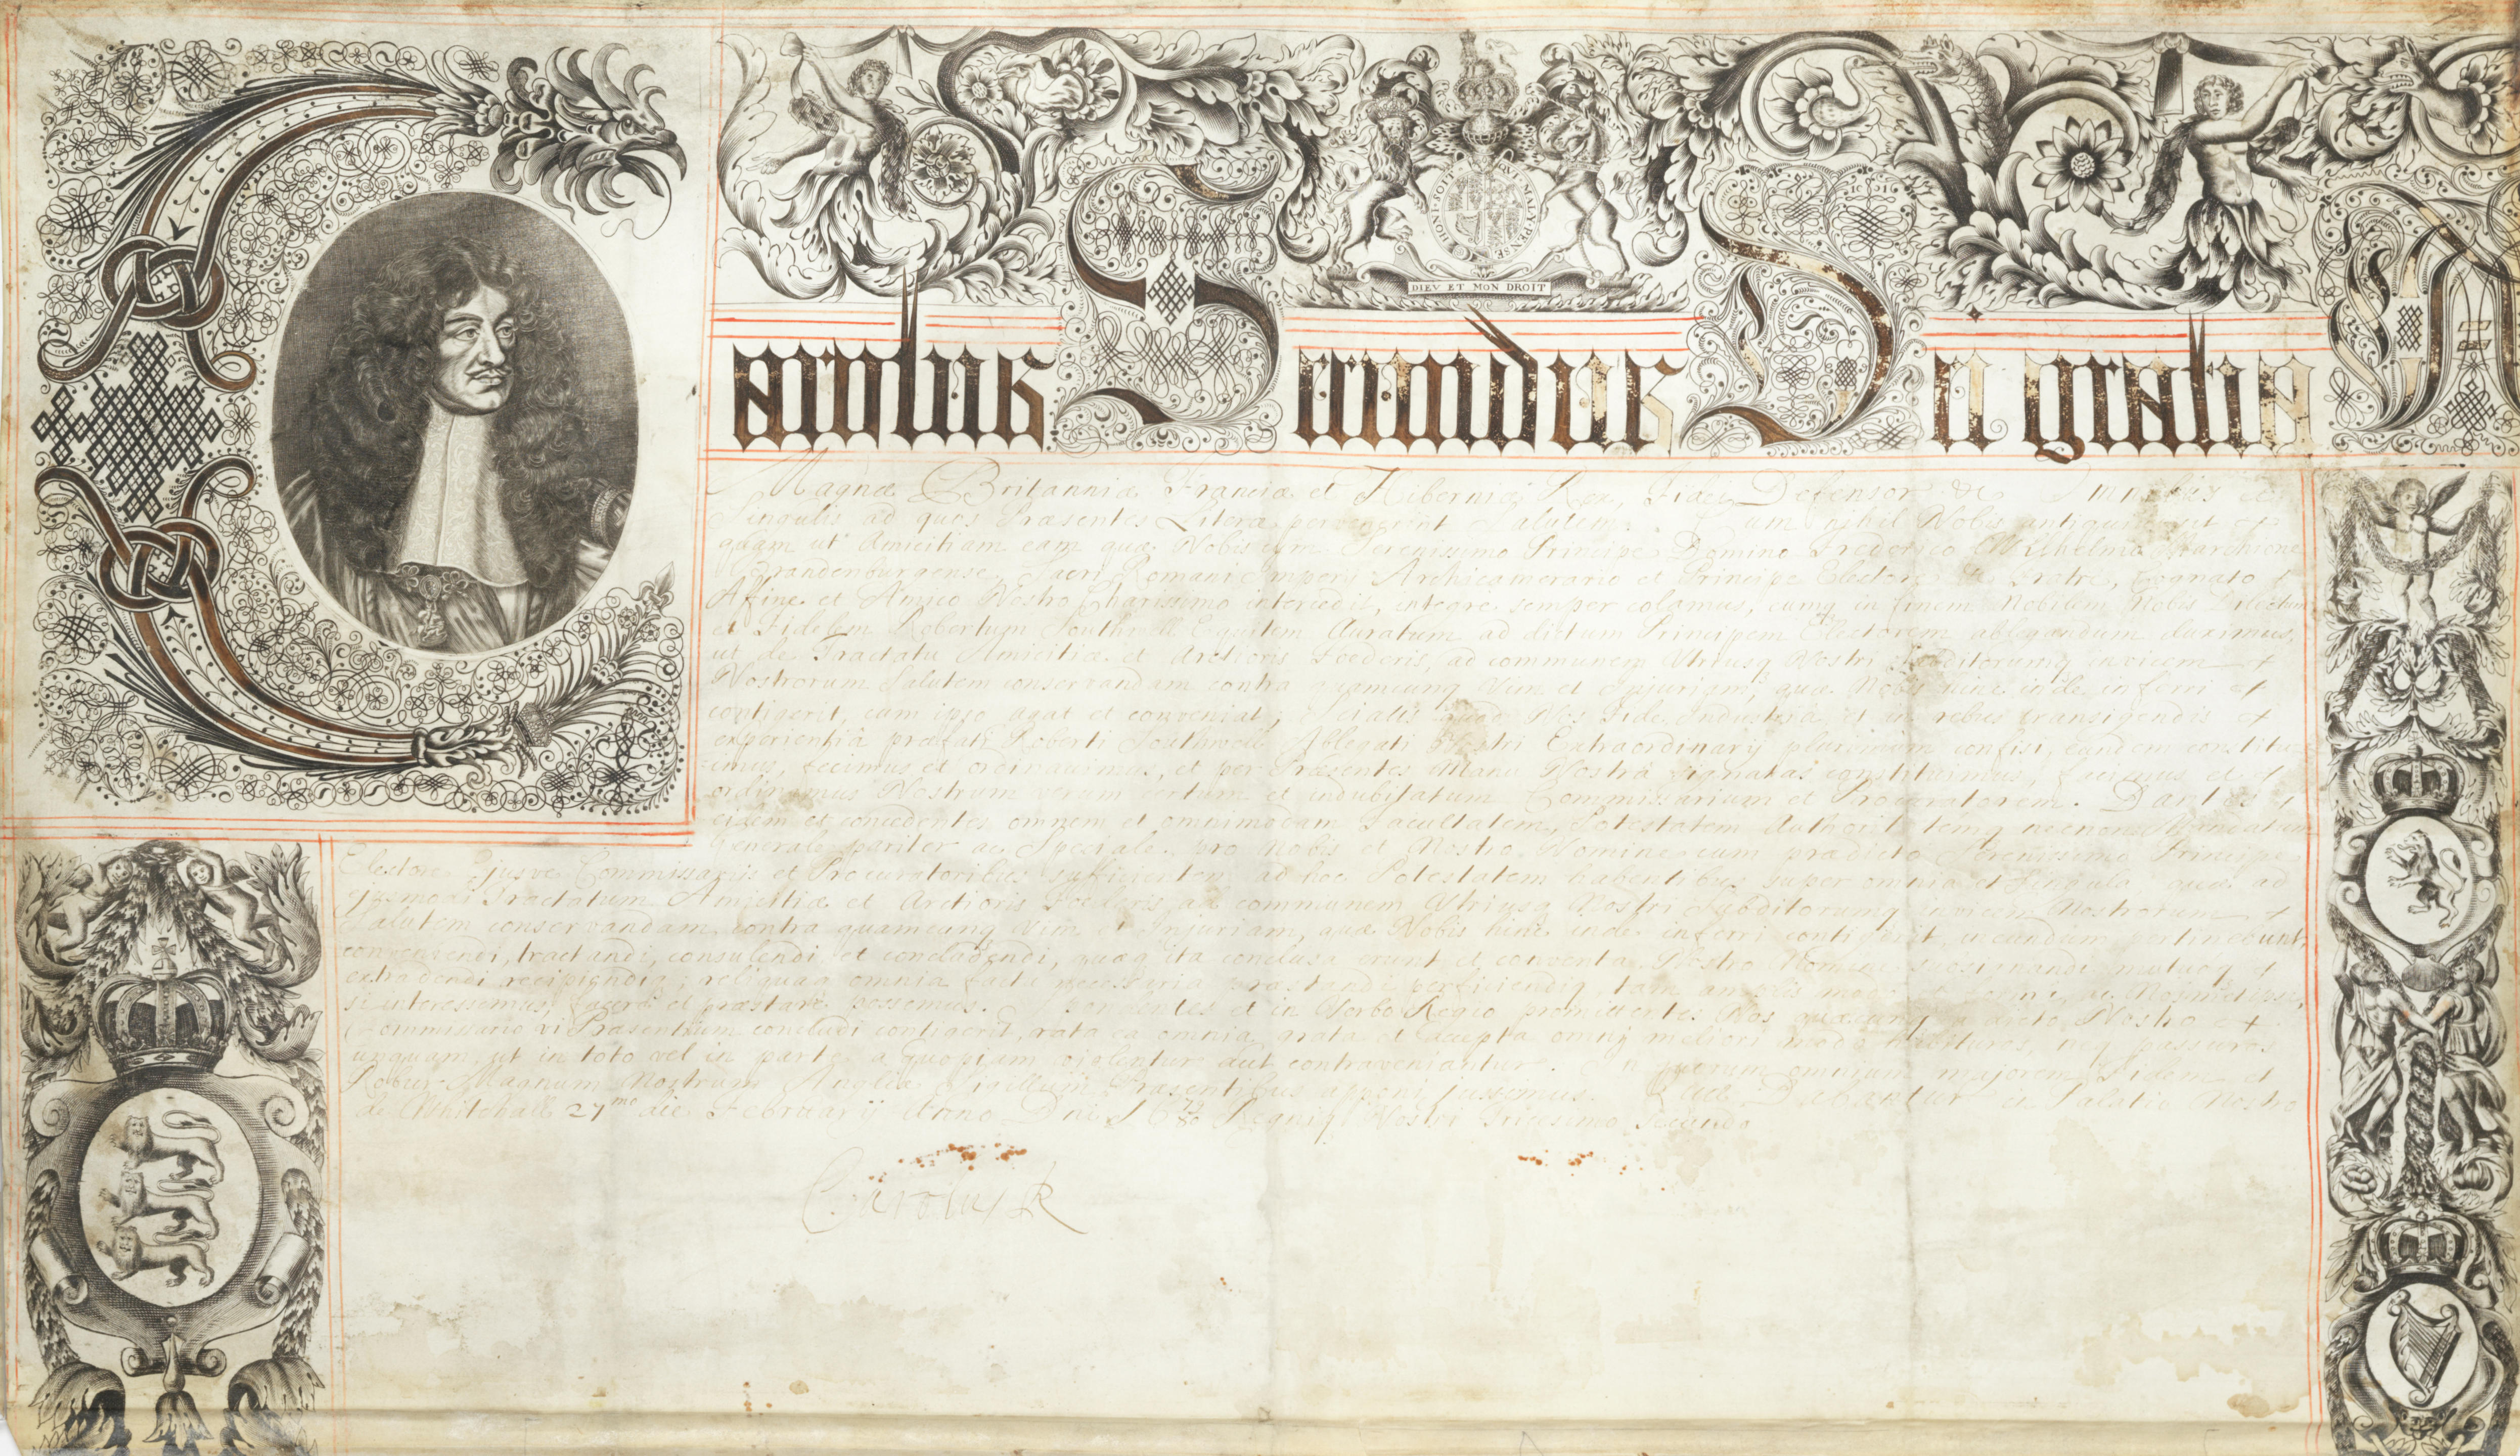 HONI SOIT QVI MAL Y PENSE
DIEV ET MON DROIT
Carolus Secundus Dei gratia
Magnæ Britanniæ Franciæ et Hiberniæ Rex, Fidei Defensor &c Omnibus et
Singulis ad quos Præsentes Literæ pervenerint Salutem. Cum nihil Nobis antiquius sit
quam ut Amicitiam eam quæ Nobis cum Serenissimo Principe Domino Frederico Wilhelmo Marchione
Brandenburgense, Sacri Romani Imperii Archicamerario et Principe Electore Fratre, Cognato
Affine et Amico Nostro Charissimo intercedit, integre semper colamus, cumq in finem Nobilem Nobis Dilectum
et Fidelem Robertum Southwell Equitem Auratum ad dictum Principem Electorem ablegandum duximus,
ut de Tractatu Amicitiæ et Arctioris Foederis, ad communem Utriusq Nostri Subditorumq invicem
Nostrorum Salutem conservandam contra quamcunq Vim et Injuriam, quæ Nobis hinc inde inferri
contigerit, cum ipso agat et conveniat; Sciatis quod Nos Fide Industria et in rebus transigendis
experientiâ præfati Roberti Southwell Ablegati Nostri Extraordinarij plurimum confisi, Eundem constitu-
imus, fecimus et ordinavimus, et per Præsentes Manu Nostrâ signatas constituimus, facimus et
ordinamus Nostrum verum certum et indubitatum Commissarium et Procuratorem. Dantes
eidem et concedentes omnem et omnimodam Facultatem, Potestatem Authoritatemq necnon Mandatum
generale pariter ac Speciale pro Nobis et Nostro Nomine cum prædicto Serenissimo Principe
Electore Ejusve Commissariis et Procuratoribus sufficientem ad hoc Potestatem habentibus super omnia et singula quæ ad
ejusmodi Tractatum Amicitiæ et Arctioris Foederis ad communem Utriusq Nostri Subditorumq invicem Nostrorum
Salutem conservandam contra quamcunq Vim et Injuriam, quæ Nobis hinc inde inferri contigerit, ineundum pertinebunt,
conveniendi, tractandi, consulendi et concludendi, quæq ita conclusa erunt et conventa Nostro Nomine signandi mutuoq
extradendi recipiendiq; reliquaq omnia factu necessaria præstandi perficiendiq tam amplis modo et forma ac Nosmetipsi,
si interessemus, facere et præstare possemus. Spondentes et in Verbo Regio promittentes Nos quæcunq a dicto Nostro
Commissario vi Præsentium concludi contigerit, rata ea omnia grata et accepta omni meliori modo habituros, neq passuros
unquam ut in toto vel in parte a quopiam violentur aut contraveniantur. In quorum omnium majorem Fidem et
Robur Magnum Nostrum Angliæ Sigillum Præsentibus apponi jussimus. Quæ Dabantur in Palatio Nostro
de Whitehall 27mo die Februarij Anno Dni 16 79/80 Regniq Nostri Tricesimo Secundo
Carolus R